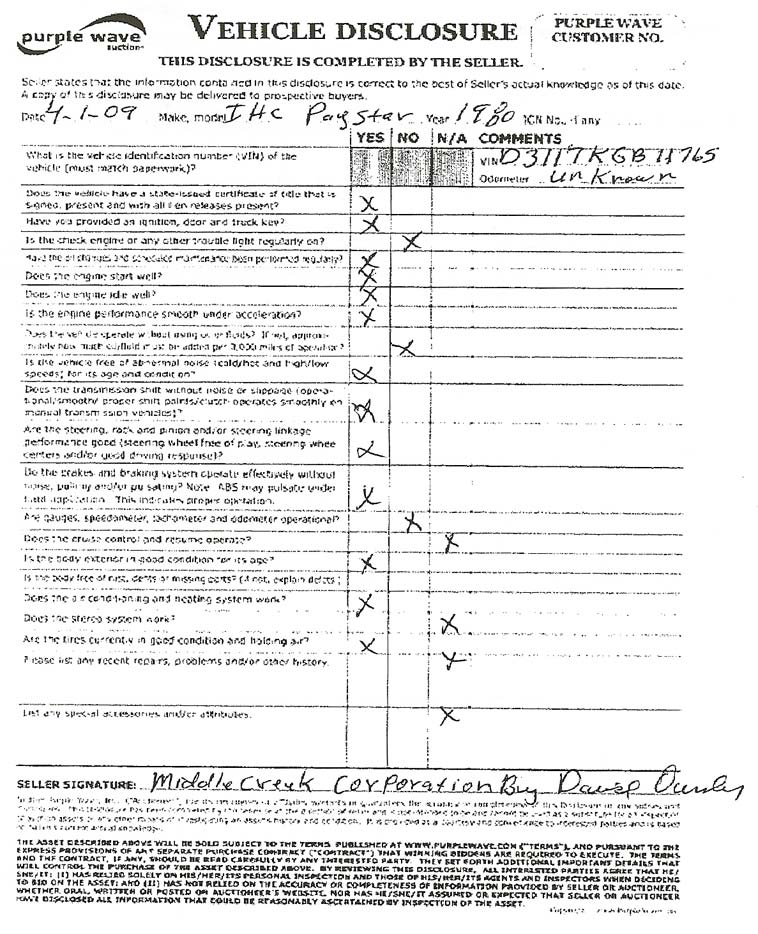 purple wave
auction
VEHICLE DISCLOSURE
PURPLE WAVE
CUSTOMER NO.
THIS DISCLOSURE IS COMPLETED BY THE SELLER.
Seller states that the information contained in this disclosure is correct to the best of Seller's actual knowledge as of this date.
A copy of this disclosure may be delivered to prospective buyers.
Date 4-1-09 Make, model IHC PayStar Year 1980 ICN No., if any
YES NO N/A COMMENTS
What is the vehicle identification number (VIN) of the
vehicle (must match paperwork)?
VIN D3117KGB11765
Odometer Unknown
Does the vehicle have a state-issued certificate of title that is
signed, present and with all lien releases present? X
Have you provided an ignition, door and truck key? X
Is the check engine or any other trouble light regularly on? X
Have the oil changes and scheduled maintenance been performed regularly? X
Does the engine start well? X
Does the engine idle well? X
Is the engine performance smooth under acceleration? X
Does the vehicle operate without using oil or fluids? If not, approxi-
mately how much oil/fluid must be added per 3,000 miles of operation? X
Is the vehicle free of abnormal noise (cold/hot and high/low
speeds) for its age and condition? X
Does the transmission shift without noise or slippage (opera-
tional/smooth/ proper shift points/clutch operates smoothly on
manual transmission vehicles)? X
Are the steering, rack and pinion and/or steering linkage
performance good (steering wheel free of play, steering wheel
centers and/or good driving response)? X
Do the brakes and braking system operate effectively without
noise, pulling and/or pulsating? Note: ABS may pulsate under
hard application. This indicates proper operation. X
Are gauges, speedometer, tachometer and odometer operational? X
Does the cruise control and resume operate? X
Is the body exterior in good condition for its age? X
Is the body free of rust, dents or missing parts? (If not, explain defects.)
Does the air conditioning and heating system work? X
Does the stereo system work? X
Are the tires currently in good condition and holding air? X
Please list any recent repairs, problems and/or other history. X
List any special accessories and/or attributes. X
SELLER SIGNATURE: Middle Creek Corporation By
THE ASSET DESCRIBED ABOVE WILL BE SOLD SUBJECT TO THE TERMS PUBLISHED AT WWW.PURPLEWAVE.COM ("TERMS"), AND PURSUANT TO THE
EXPRESS PROVISIONS OF ANY SEPARATE PURCHASE CONTRACT ("CONTRACT") THAT WINNING BIDDERS ARE REQUIRED TO EXECUTE. THE TERMS
AND THE CONTRACT, IF ANY, SHOULD BE READ CAREFULLY BY ANY INTERESTED PARTY. THEY SET FORTH ADDITIONAL IMPORTANT DETAILS THAT
WILL CONTROL THE PURCHASE OF THE ASSET DESCRIBED ABOVE. BY REVIEWING THIS DISCLOSURE, ALL INTERESTED PARTIES AGREE THAT HE/
SHE/IT: (I) HAS RELIED SOLELY ON HIS/HER/ITS PERSONAL INSPECTION AND THOSE OF HIS/HER/ITS AGENTS AND INSPECTORS WHEN DECIDING
TO BID ON THE ASSET; AND (II) HAS NOT RELIED ON THE ACCURACY OR COMPLETENESS OF INFORMATION PROVIDED BY SELLER OR AUCTIONEER,
WHETHER ORAL, WRITTEN OR POSTED ON AUCTIONEER'S WEBSITE, NOR HAS HE/SHE/IT ASSUMED OR EXPECTED THAT SELLER OR AUCTIONEER
HAVE DISCLOSED ALL INFORMATION THAT COULD BE REASONABLY ASCERTAINED BY INSPECTION OF THE ASSET.